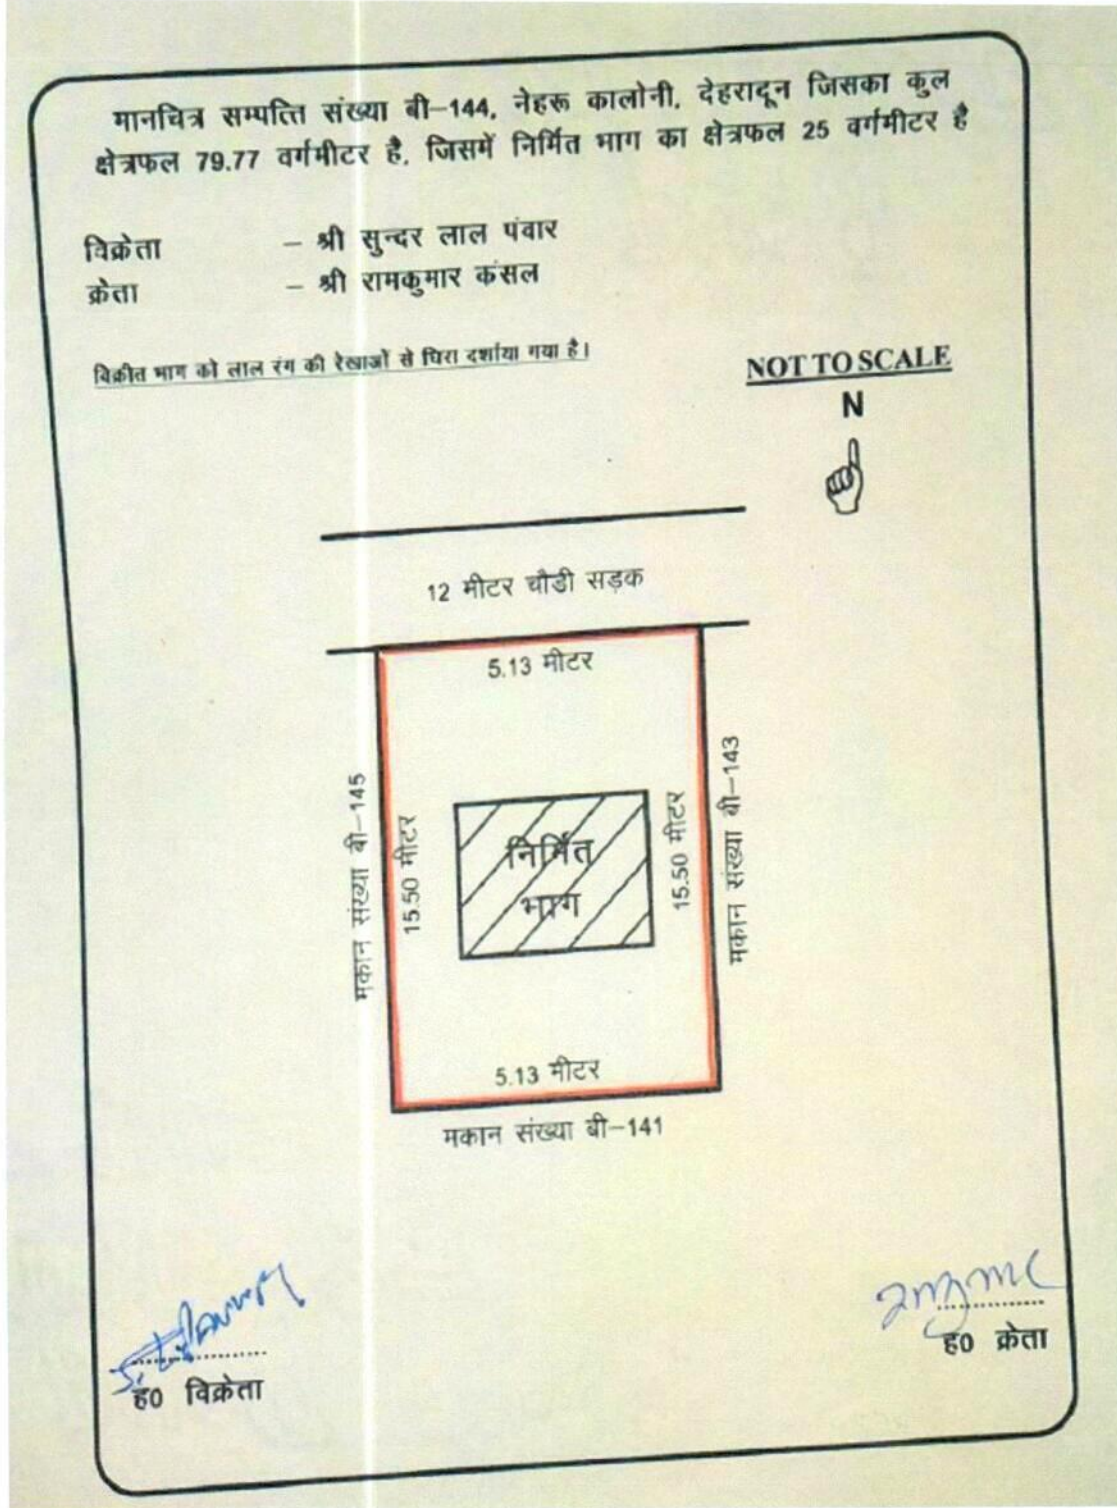 मानचित्र सम्पत्ति संख्या बी–144, नेहरू कालोनी, देहरादून जिसका कुल
क्षेत्रफल 79.77 वर्गमीटर है, जिसमें निर्मित भाग का क्षेत्रफल 25 वर्गमीटर है
विक्रेता – श्री सुन्दर लाल पंवार
क्रेता – श्री रामकुमार कंसल
विक्रीत भाग को लाल रंग की रेखाओं से घिरा दर्शाया गया है।
NOT TO SCALE
N
12 मीटर चौडी सड़क
5.13 मीटर
मकान संख्या बी–145
15.50 मीटर
निर्मित
भाग
15.50 मीटर
मकान संख्या बी–143
5.13 मीटर
मकान संख्या बी–141
ह0 विक्रेता
ह0 क्रेता